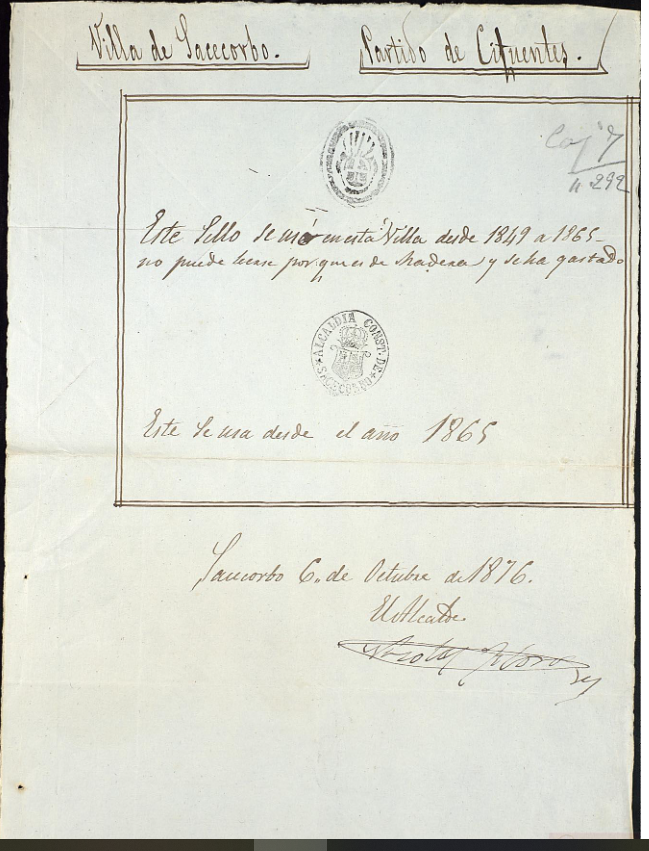 Villa de Sacecorbo. Partido de Cifuentes.
Caj 7
n 292
Este Sello se usó en esta Villa desde 1849 a 1865
no puede leerse por que es de Madera y se ha gastado
ALCALDIA CONST. DE SACECORBO
Este se usa desde el año 1865
Sacecorbo 6. de Octubre de 1876.
El Alcalde